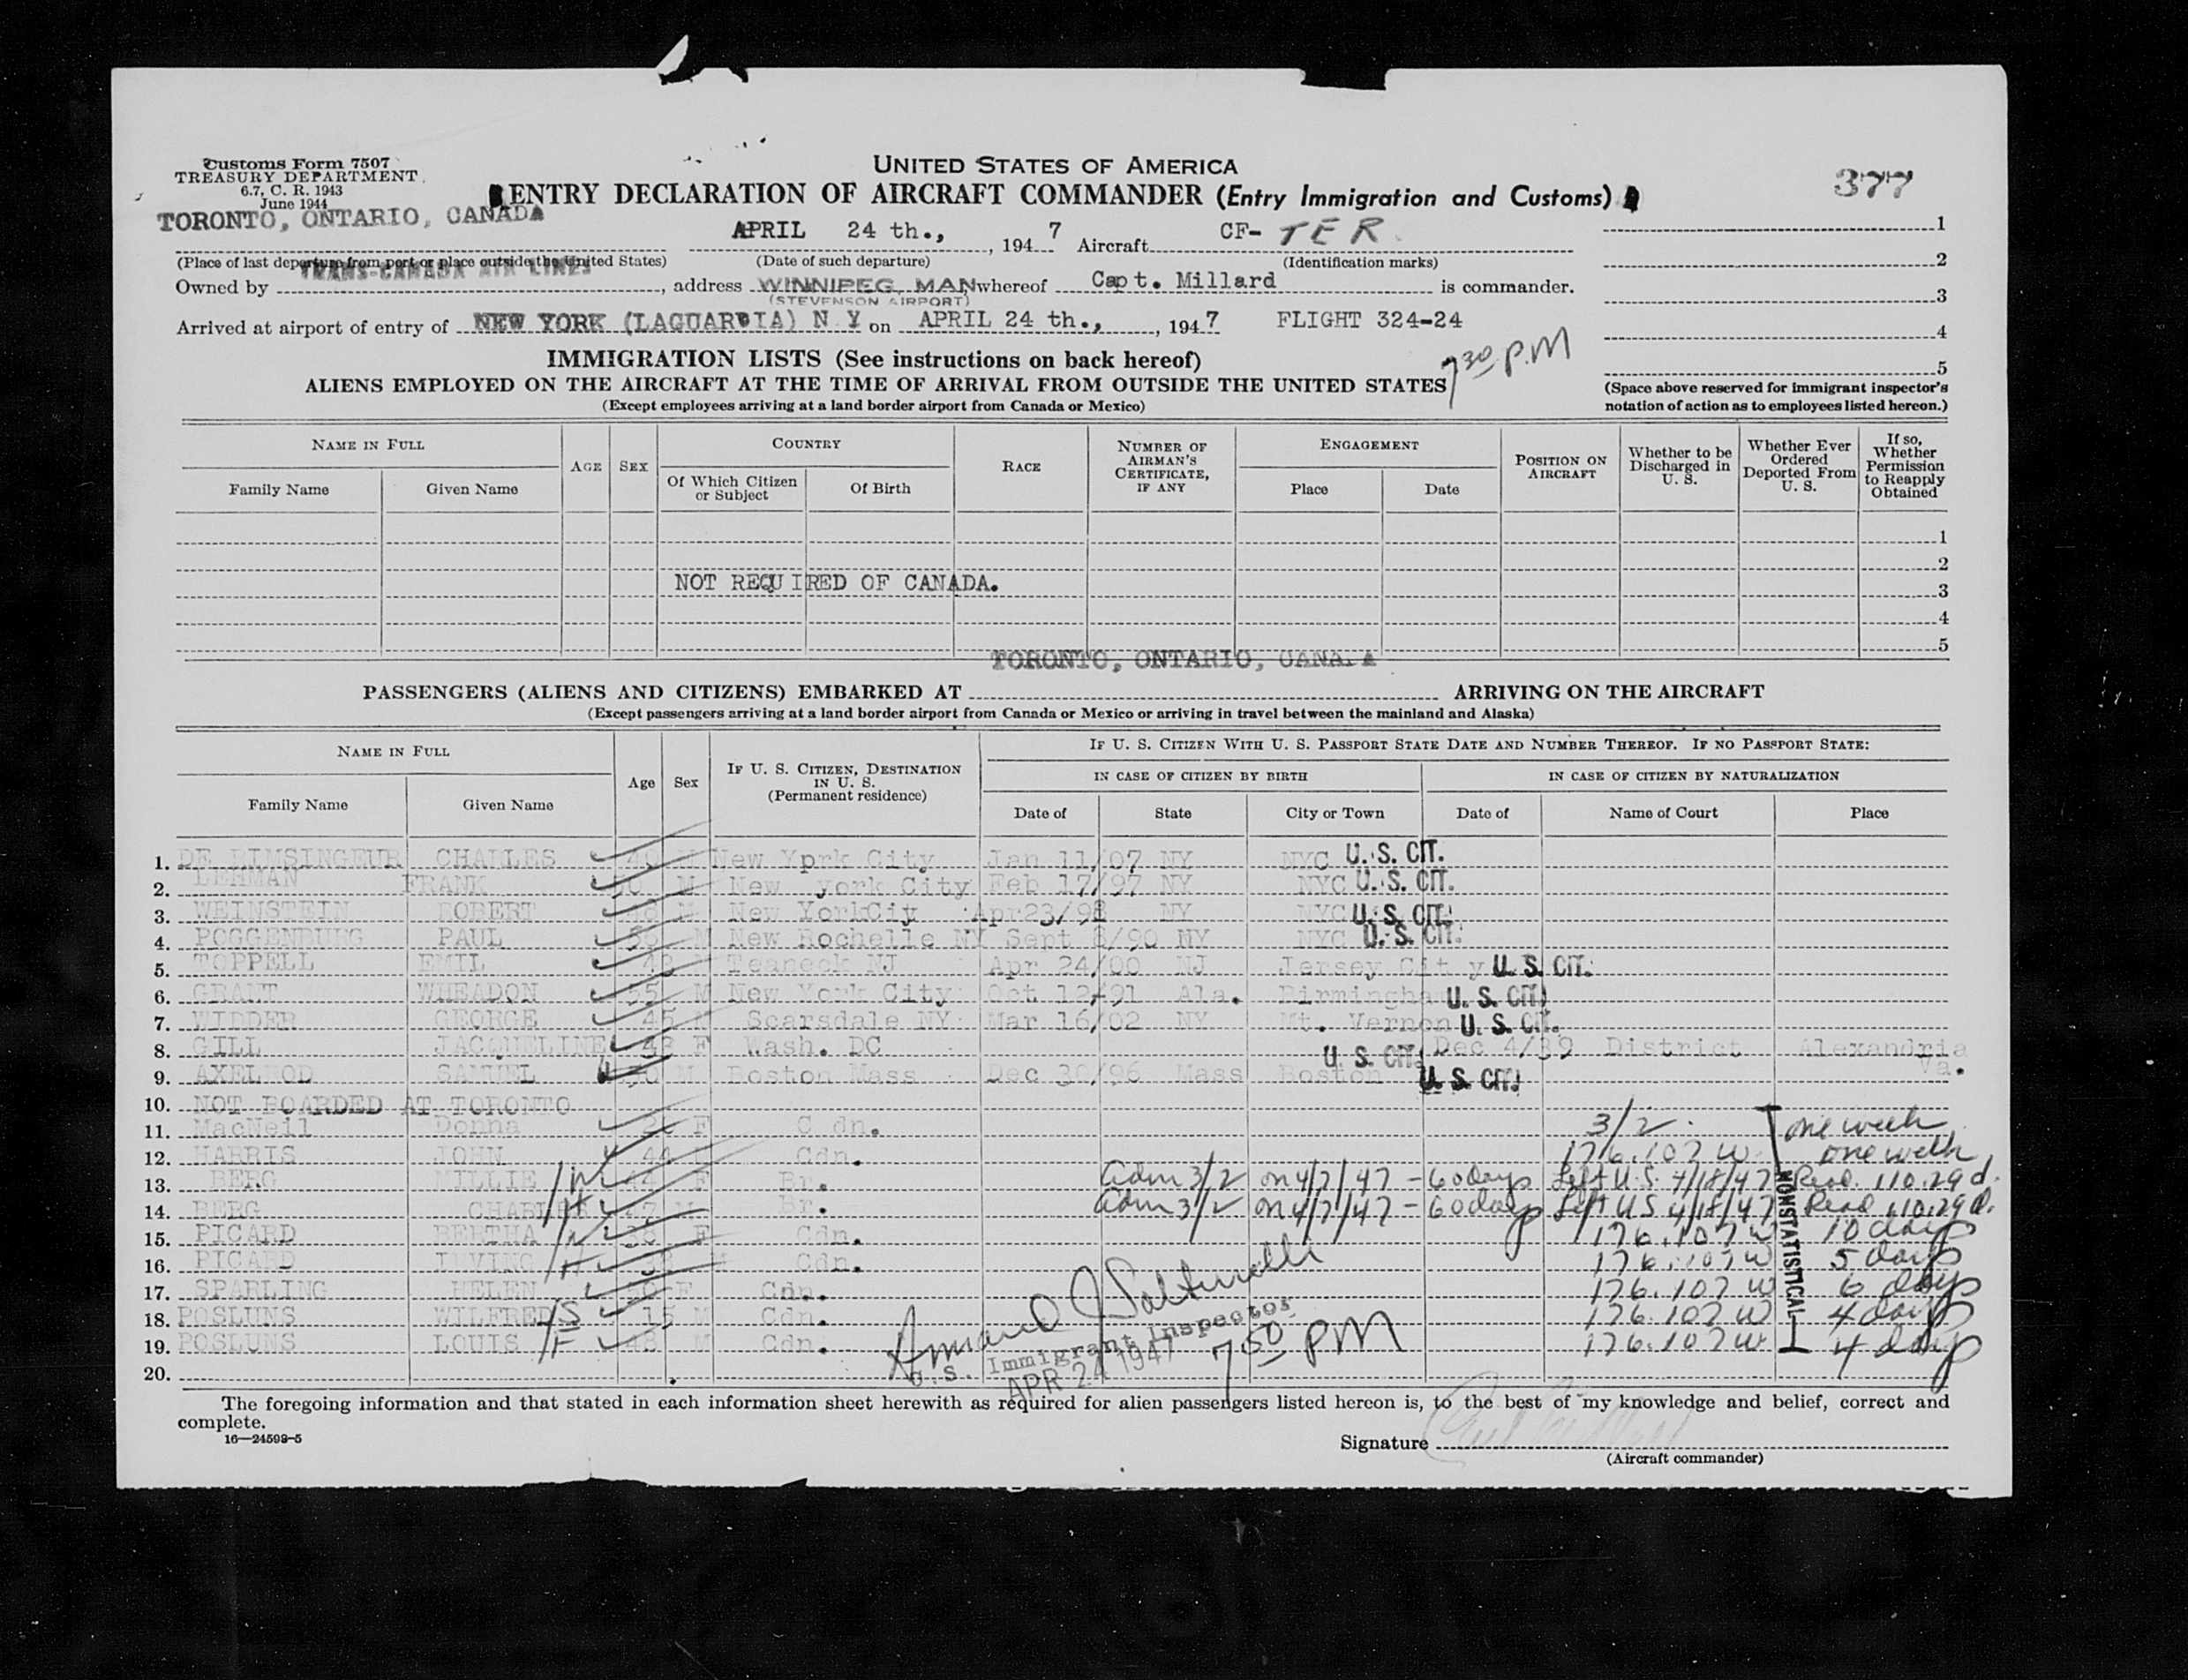 Customs Form 7507
TREASURY DEPARTMENT
6.7, C. R. 1943
June 1944
UNITED STATES OF AMERICA
ENTRY DECLARATION OF AIRCRAFT COMMANDER (Entry Immigration and Customs)
377
TORONTO, ONTARIO, CANADA
APRIL 24 th., , 194 7 Aircraft CF- TER
1
(Place of last departure from port or place outside the United States) (Date of such departure) (Identification marks)
2
Owned by TRANS-CANADA AIR LINES , address WINNIPEG, MAN whereof Capt. Millard is commander.
(STEVENSON AIRPORT)
3
Arrived at airport of entry of NEW YORK (LAGUARDIA) N Y on APRIL 24 th., , 194 7 FLIGHT 324-24
4
IMMIGRATION LISTS (See instructions on back hereof)
7 30 P.M
5
ALIENS EMPLOYED ON THE AIRCRAFT AT THE TIME OF ARRIVAL FROM OUTSIDE THE UNITED STATES
(Except employees arriving at a land border airport from Canada or Mexico)
(Space above reserved for immigrant inspector's
notation of action as to employees listed hereon.)
NAME IN FULL
Family Name Given Name
AGE
SEX
COUNTRY
Of Which Citizen or Subject
Of Birth
RACE
NUMBER OF AIRMAN'S CERTIFICATE, IF ANY
ENGAGEMENT
Place Date
POSITION ON AIRCRAFT
Whether to be Discharged in U. S.
Whether Ever Ordered Deported From U. S.
If so, Whether Permission to Reapply Obtained
1
2
NOT REQUIRED OF CANADA.
3
4
5
TORONTO, ONTARIO, CANADA
PASSENGERS (ALIENS AND CITIZENS) EMBARKED AT ARRIVING ON THE AIRCRAFT
(Except passengers arriving at a land border airport from Canada or Mexico or arriving in travel between the mainland and Alaska)
NAME IN FULL
Family Name Given Name
Age
Sex
IF U. S. CITIZEN, DESTINATION
IN U. S.
(Permanent residence)
IF U. S. CITIZEN WITH U. S. PASSPORT STATE DATE AND NUMBER THEREOF. IF NO PASSPORT STATE:
IN CASE OF CITIZEN BY BIRTH
IN CASE OF CITIZEN BY NATURALIZATION
Date of State City or Town Date of Name of Court Place
1. DE CHARLES 40 M New York City Jan 11/07 NY NYC U. S. CIT.
2. LEHMAN FRANK 50 M New york City Feb 17/97 NY NYC U. S. CIT.
3. WEINSTEIN ROBERT M New YorkCity Apr23/98 NY NYC U. S. CIT.
4. POGGENBURG PAUL M New Rochelle NY Sept 8/90 NY NYC U. S. CIT.
5. TOPPELL EMIL M Teaneck NJ Apr 24/00 NJ Jersey City U. S. CIT.
6. GRANT WHEADON 55 M New York City Oct 12/91 Ala. Birmingha U. S. CIT
7. WIDDER GEORGE 45 M Scarsdale NY Mar 16/02 NY Mt. Vernon U. S. CIT.
8. GILL JACQUELINE 43 F Wash. DC U. S. CIT. Dec 4/39 District Alexandria
Va.
9. AXELROD SAMUEL 50 M Boston Mass Dec 30/96 Mass Boston U. S. CIT.
10. NOT BOARDED AT TORONTO
11. MacNeil Donna F C dn. 3/2 one week
12. HARRIS JOHN 44 Cdn. 176.107 W one week
13. BERG MILLIE /W 44 F Br. adm 3/2 on 4/7/47 - 60 days Left U.S. 4/18/47 Read. 110.29 d.
14. BERG CHARLES /H 47 M Br. adm 3/2 on 4/7/47 - 60 days Left U S 4/18/47 Read 110.29 d.
15. PICARD BERTHA /W 38 F Cdn. 176.107 W 10 days
16. PICARD IRVING /H Cdn. 176.107 W 5 days
17. SPARLING HELEN F Cdn. 176.107 W 6 days
18. POSLUNS WILFRED /S 15 M Cdn. 176.107 W 4 days
19. POSLUNS LOUIS /F 48 M Cdn. 176.107 W 4 days
20.
NONSTATISTICAL
U. S. Immigrant Inspector
APR 24 1947
7 50 PM
The foregoing information and that stated in each information sheet herewith as required for alien passengers listed hereon is, to the best of my knowledge and belief, correct and
complete.
16—24598-5
Signature
(Aircraft commander)